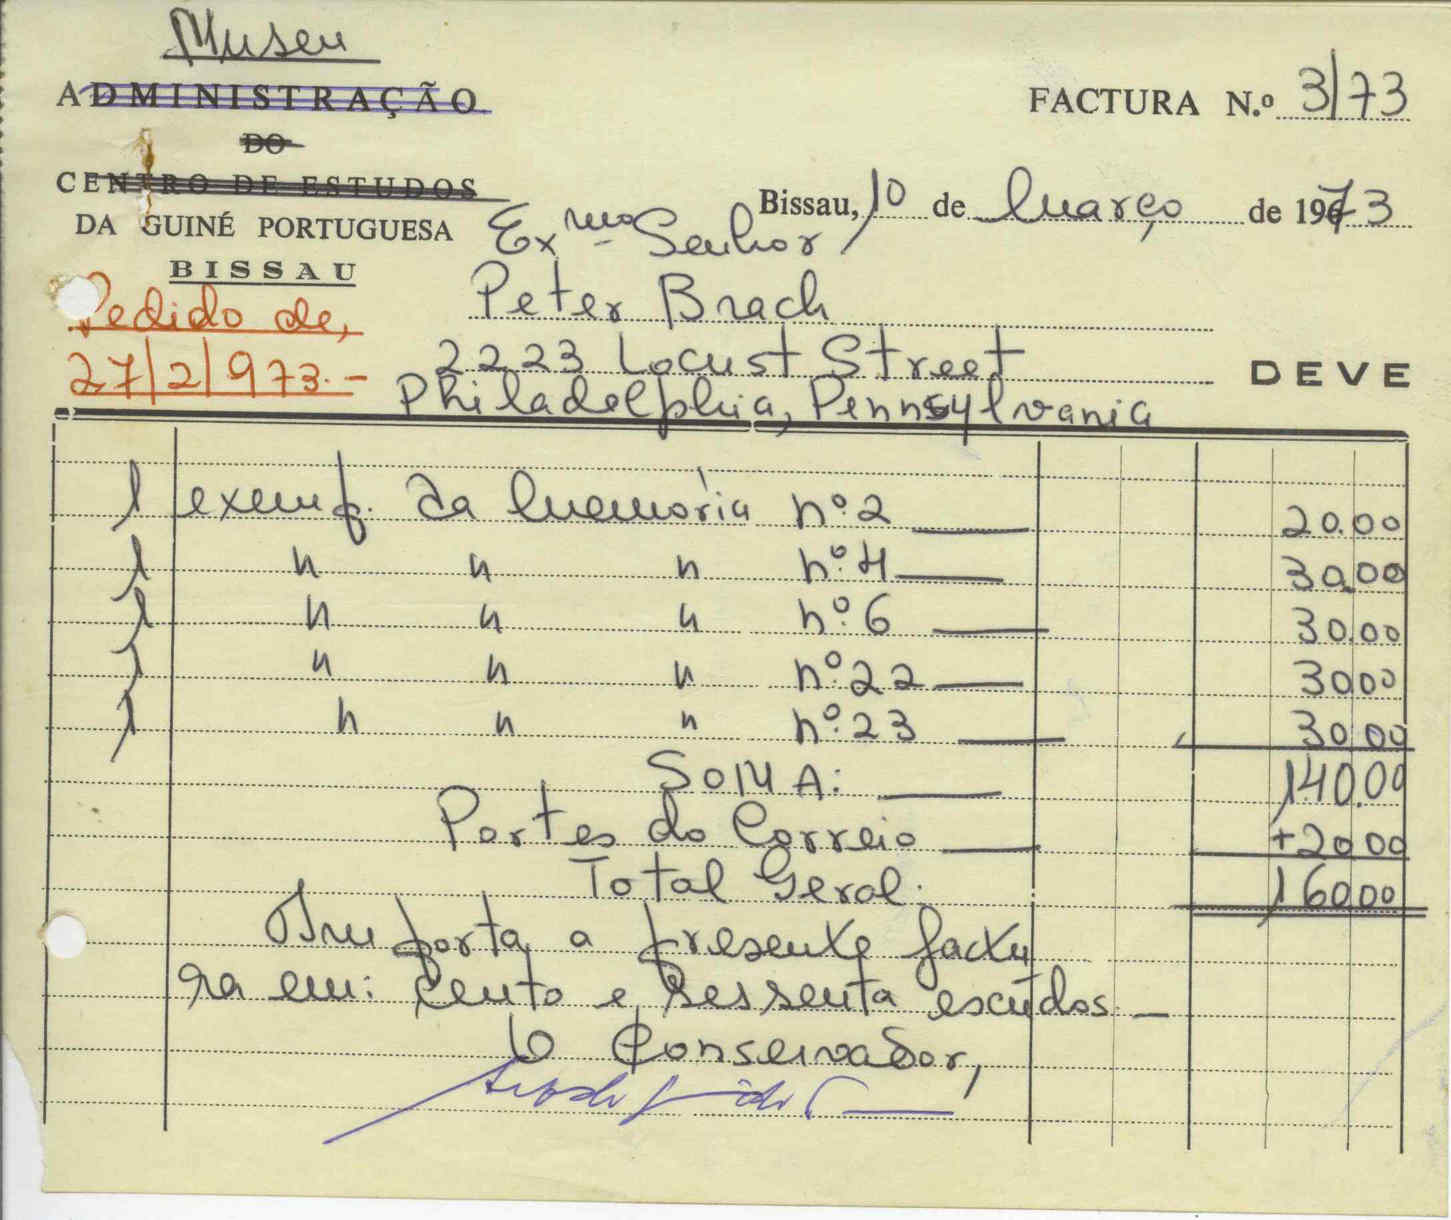 Museu
ADMINISTRAÇÃO
DO
CENTRO DE ESTUDOS
DA GUINÉ PORTUGUESA
BISSAU
FACTURA N.º 3/73
Bissau, 10 de Março de 1973
Pedido de,
27/2/973.-
Exmo Senhor
Peter Brach
2223 Locust Street
Philadelphia, Pennsylvania
DEVE
1 exemp. da memória nº 2 20.00
1 " " " nº 4 30.00
1 " " " nº 6 30.00
1 " " " nº 22 30.00
1 " " " nº 23 30.00
SOMA: 140.00
Portes do Correio +20.00
Total Geral. 160.00
Importa a presente factu
ra em: cento e sessenta escudos. —
O Conservador,